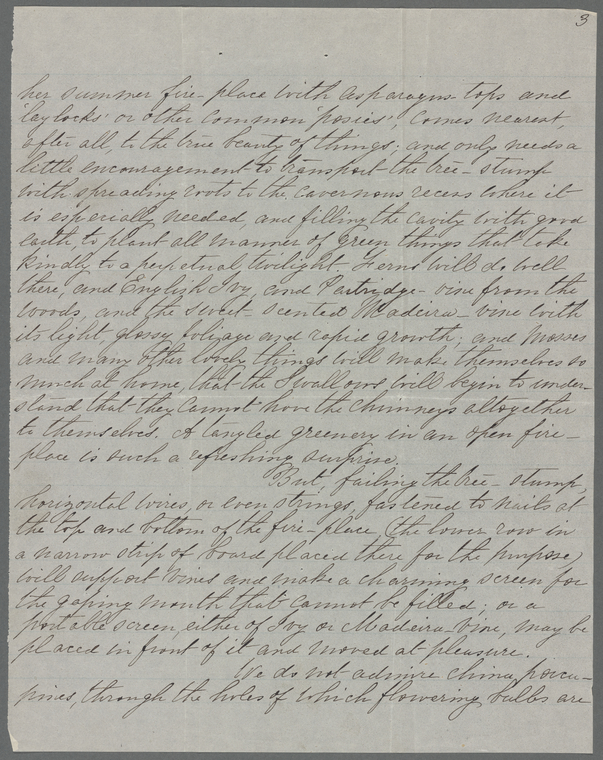 3
her summer fire-place with asparagus-tops and
'laylocks' or other common 'posies', comes nearest,
after all, to the true beauty of things; and only needs a
little encouragement to transport the tree-stump
with spreading roots to the cavernous recess where it
is especially needed, and filling the cavity with good
earth, to plant all manner of green things that take
kindly to a perpetual twilight. Ferns will do well
there, and English Ivy, and Partridge-vine from the
woods, and the sweet-scented Madeira-vine with
its light, glossy foliage and rapid growth; and mosses
and many other lovely things will make themselves so
much at home, that the Swallows will begin to under-
stand that they cannot have the chimneys altogether
to themselves. A tangled greenery in an open fire-
place is such a refreshing surprise.
But, failing the tree-stump,
horizontal wires, or even strings, fastened to nails at
the top and bottom of the fire-place, (the lower row in
a narrow strip of board placed there for the purpose)
will support vines and make a charming screen for
the gaping mouth that cannot be filled; or a
portable screen, either of Ivy or Madeira-vine, may be
placed in front of it and moved at pleasure.
We do not admire china porcu-
pines, through the holes of which flowering bulbs are